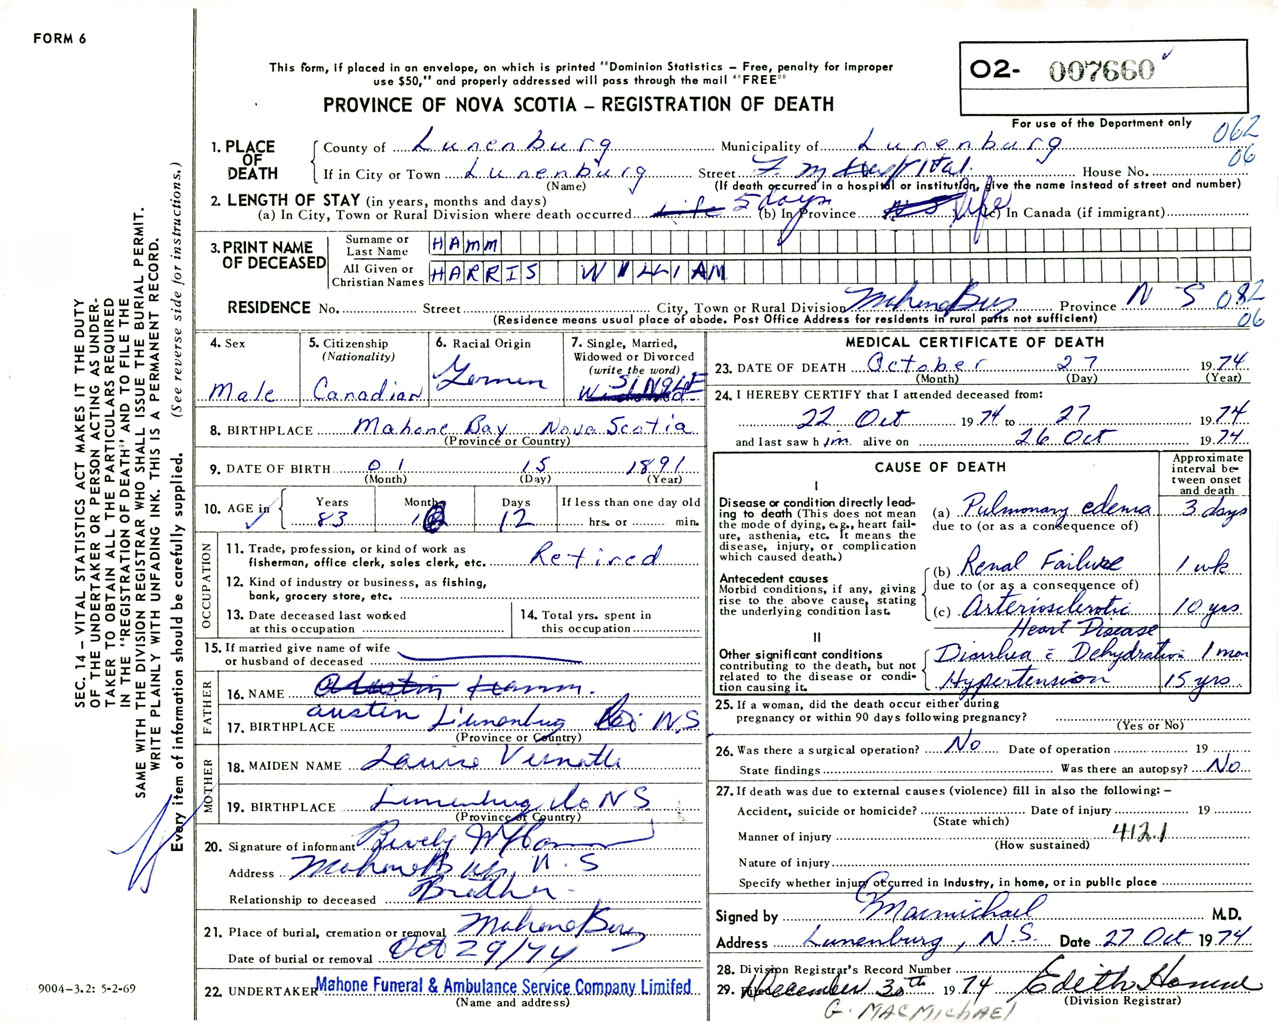 FORM 6
This form, if placed in an envelope, on which is printed "Dominion Statistics – Free, penalty for improper
use $50," and properly addressed will pass through the mail "FREE"
PROVINCE OF NOVA SCOTIA – REGISTRATION OF DEATH
O2- 007660
For use of the Department only
062
06
1. PLACE OF DEATH
County of Lunenburg Municipality of Lunenburg
If in City or Town Lunenburg Street F. M Hospital. House No.
(Name) (If death occurred in a hospital or institution, give the name instead of street and number)
2. LENGTH OF STAY (in years, months and days)
(a) In City, Town or Rural Division where death occurred Life 5 days (b) In Province N S life (c) In Canada (if immigrant)
3. PRINT NAME OF DECEASED
Surname or Last Name HAMM
All Given or Christian Names HARRIS WILLIAM
RESIDENCE No. Street City, Town or Rural Division Mahone Bay Province N S 082
06
(Residence means usual place of abode. Post Office Address for residents in rural parts not sufficient)
4. Sex
Male
5. Citizenship
(Nationality)
Canadian
6. Racial Origin
German
7. Single, Married,
Widowed or Divorced
(write the word)
SINGLE
8. BIRTHPLACE Mahone Bay Nova Scotia
(Province or Country)
9. DATE OF BIRTH 01 15 1891
(Month) (Day) (Year)
10. AGE in
Years Months Days If less than one day old
83 12 hrs. or min.
OCCUPATION
11. Trade, profession, or kind of work as
fisherman, office clerk, sales clerk, etc. Retired
12. Kind of industry or business, as fishing,
bank, grocery store, etc.
13. Date deceased last worked
at this occupation
14. Total yrs. spent in
this occupation
15. If married give name of wife
or husband of deceased
FATHER
16. NAME Austin Hamm.
austin
17. BIRTHPLACE Lunenburg Co N.S
(Province or Country)
MOTHER
18. MAIDEN NAME
19. BIRTHPLACE Lunenburg Co N S
(Province or Country)
20. Signature of informant
Address Mahone Bay, N.S
Relationship to deceased Brother
21. Place of burial, cremation or removal Mahone Bay
Date of burial or removal Oct 29/74
22. UNDERTAKER Mahone Funeral & Ambulance Service Company Limited
(Name and address)
MEDICAL CERTIFICATE OF DEATH
23. DATE OF DEATH October 27 1974
(Month) (Day) (Year)
24. I HEREBY CERTIFY that I attended deceased from:
22 Oct 1974 to 27 1974
and last saw him alive on 26 Oct 1974
CAUSE OF DEATH
Approximate
interval be-
tween onset
and death
I
Disease or condition directly lead-
ing to death (This does not mean
the mode of dying, e.g., heart fail-
ure, asthenia, etc. It means the
disease, injury, or complication
which caused death.)
(a) Pulmonary edema 3 days
due to (or as a consequence of)
Antecedent causes
Morbid conditions, if any, giving
rise to the above cause, stating
the underlying condition last.
(b) Renal Failure 1 wk
due to (or as a consequence of)
(c) Arteriosclerotic 10 yrs
Heart Disease
II
Other significant conditions
contributing to the death, but not
related to the disease or condi-
tion causing it.
Diarrhea c Dehydration 1 mon
Hypertension 15 yrs
25. If a woman, did the death occur either during
pregnancy or within 90 days following pregnancy?
(Yes or No)
26. Was there a surgical operation? No Date of operation 19
State findings Was there an autopsy? No
27. If death was due to external causes (violence) fill in also the following: –
Accident, suicide or homicide? Date of injury 19
(State which)
Manner of injury 412.1
(How sustained)
Nature of injury
Specify whether injury occurred in industry, in home, or in public place
Signed by Macmichael M.D.
Address Lunenburg, N.S. Date 27 Oct 1974
28. Division Registrar's Record Number
29. December 30th 1974 Edith
(Division Registrar)
G. MACMICHAEL
SEC. 14 – VITAL STATISTICS ACT MAKES IT THE DUTY
OF THE UNDERTAKER OR PERSON ACTING AS UNDER-
TAKER TO OBTAIN ALL THE PARTICULARS REQUIRED
IN THE "REGISTRATION OF DEATH" AND TO FILE THE
SAME WITH THE DIVISION REGISTRAR WHO SHALL ISSUE THE BURIAL PERMIT.
WRITE PLAINLY WITH UNFADING INK. THIS IS A PERMANENT RECORD.
Every item of information should be carefully supplied. (See reverse side for instructions.)
9004-3.2: 5-2-69